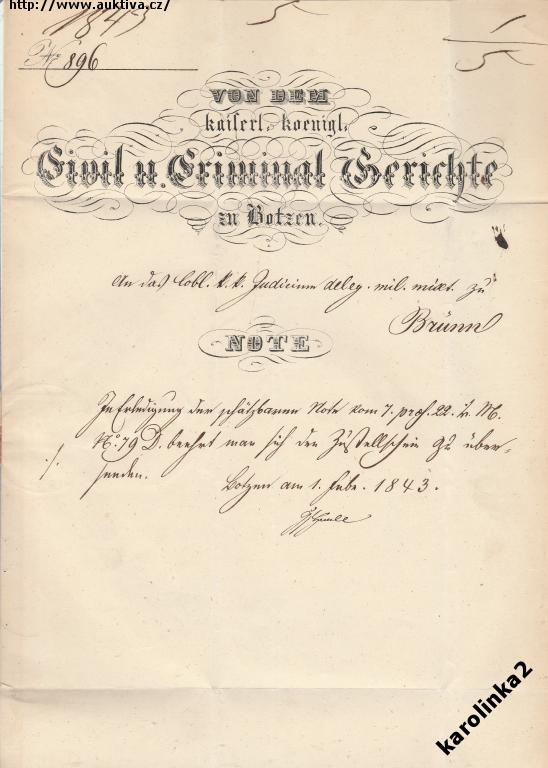 http://www.auktiva.cz/
1843
5
1/5
No 896
VON DEM
kaiserl. koenigl.
Civil u. Criminal Gerichte
zu Botzen.
An das löbl. k. k. Judicium deleg. mil. mixt. zu
Brünn
NOTE
In Erledigung der schätzbaren Note vom 7. præs. 22. v. M.
No. 79 D. beehrt man sich den Zustellschein zu über-
./. senden.
Botzen am 1. Febr. 1843.
karolinka2